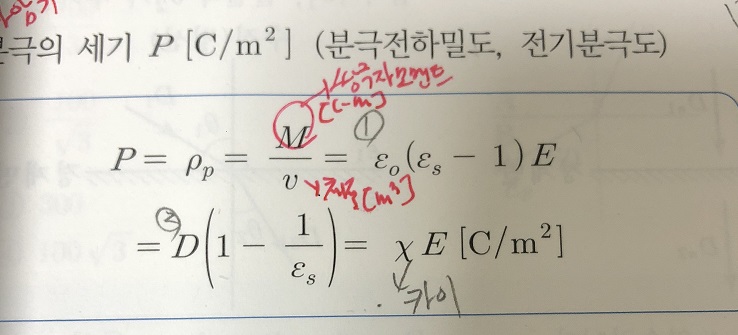 분극의 세기 P [C/m²] (분극전하밀도, 전기분극도)
쌍극자모멘트
[C-m]
①
P = ρ_p = M/v = ε_o(ε_s − 1)E
체적[m³]
②
= D(1 − 1/ε_s) = χ E [C/m²]
카이